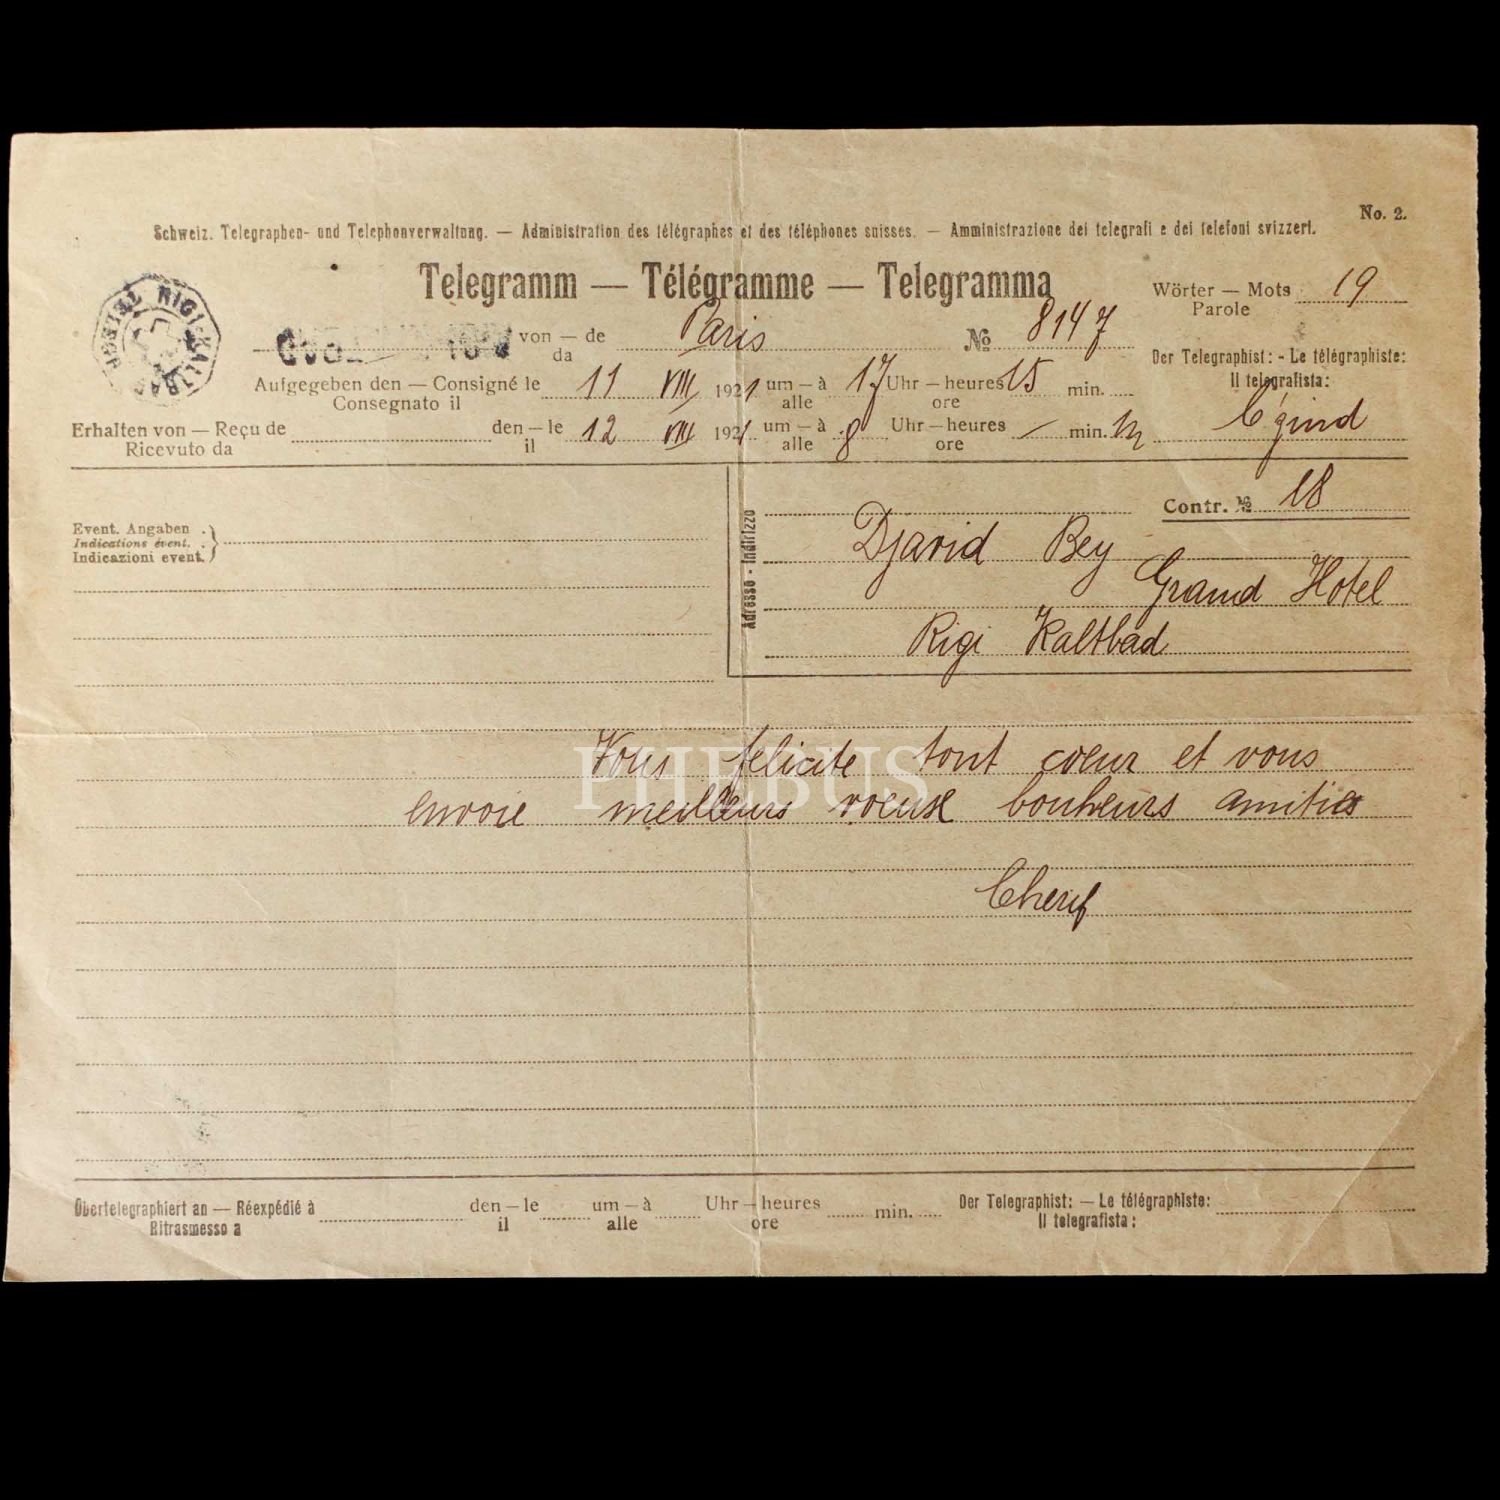 No. 2.
Schweiz. Telegraphen- und Telephonverwaltung. — Administration des télégraphes et des téléphones suisses. — Amministrazione dei telegrafi e dei telefoni svizzeri.
Telegramm — Télégramme — Telegramma
Wörter — Mots 19
Parole
RIGI-KALTBAD
von — de Paris № 8147
da
Der Telegraphist: - Le télégraphiste:
Il telegrafista:
Aufgegeben den — Consigné le 11 VIII 1921 um — à 17 Uhr — heures 15 min.
Consegnato il alle ore
Erhalten von — Reçu de den — le 12 VIII 1921 um — à 8 Uhr — heures — min.
Ricevuto da il alle ore
Contr. № 18
Event. Angaben
Indications évent.
Indicazioni event.
Adresse - Indirizzo
Djavid Bey
Grand Hotel
Rigi Kaltbad
PHEBUS
Vous felicite tout coeur et vous
envoie meilleurs voeux bonheurs amities
Cherif
Obertelegraphiert an — Réexpédié à den — le um — à Uhr — heures min. Der Telegraphist: — Le télégraphiste:
Ritrasmesso a il alle ore Il telegrafista: